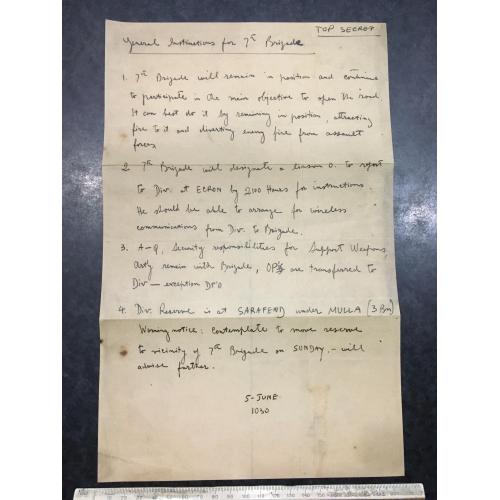 TOP SECRET
General Instructions for 7th Brigade
1. 7th Brigade will remain in position and continue
to participate in the main objective to open the road.
It can best do it by remaining in position, attracting
fire to it and diverting enemy fire from assault
forces
2. 7th Brigade will designate a liaison O. to report
to Div. at ECRON by 2100 Hours for instructions
He should be able to arrange for wireless
communications from Div. to Brigade.
3. A-Q, Security responsibilities for Support Weapons,
Arty remain with Brigade, OP's are transferred to
Div — exception
4. Div. Reserve is at SARAFEND under MULLA (3 Bn)
Warning notice: Contemplate to move reserve
to vicinity of 7th Brigade on SUNDAY. — will
advise further.
5-JUNE
1030